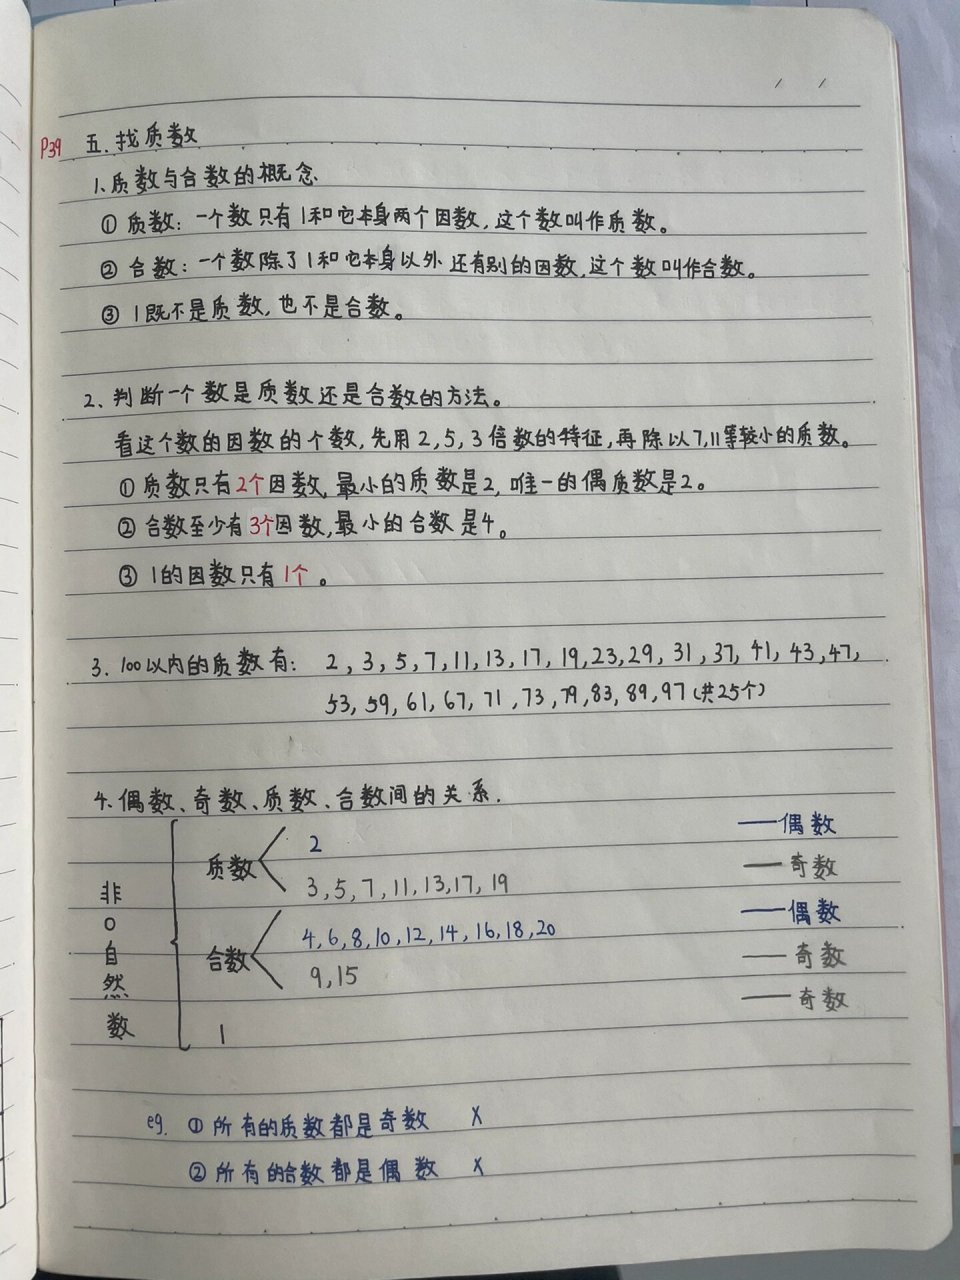 P39 五.找质数
1.质数与合数的概念.
① 质数:一个数只有1和它本身两个因数,这个数叫作质数。
② 合数:一个数除了1和它本身以外还有别的因数,这个数叫作合数。
③ 1既不是质数,也不是合数。
2、判断一个数是质数还是合数的方法。
看这个数的因数的个数,先用2,5,3倍数的特征,再除以7,11等较小的质数。
① 质数只有2个因数,最小的质数是2,唯一的偶质数是2。
② 合数至少有3个因数,最小的合数是4。
③ 1的因数只有1个。
3. 100以内的质数有: 2,3,5,7,11,13,17,19,23,29,31,37,41,43,47,
53,59,61,67,71,73,79,83,89,97(共25个)
4.偶数、奇数、质数、合数间的关系.
非0自然数
质数
2 ——偶数
3,5,7,11,13,17,19 ——奇数
合数
4,6,8,10,12,14,16,18,20 ——偶数
9,15 ——奇数
1 ——奇数
eg. ①所有的质数都是奇数 X
②所有的合数都是偶数 X